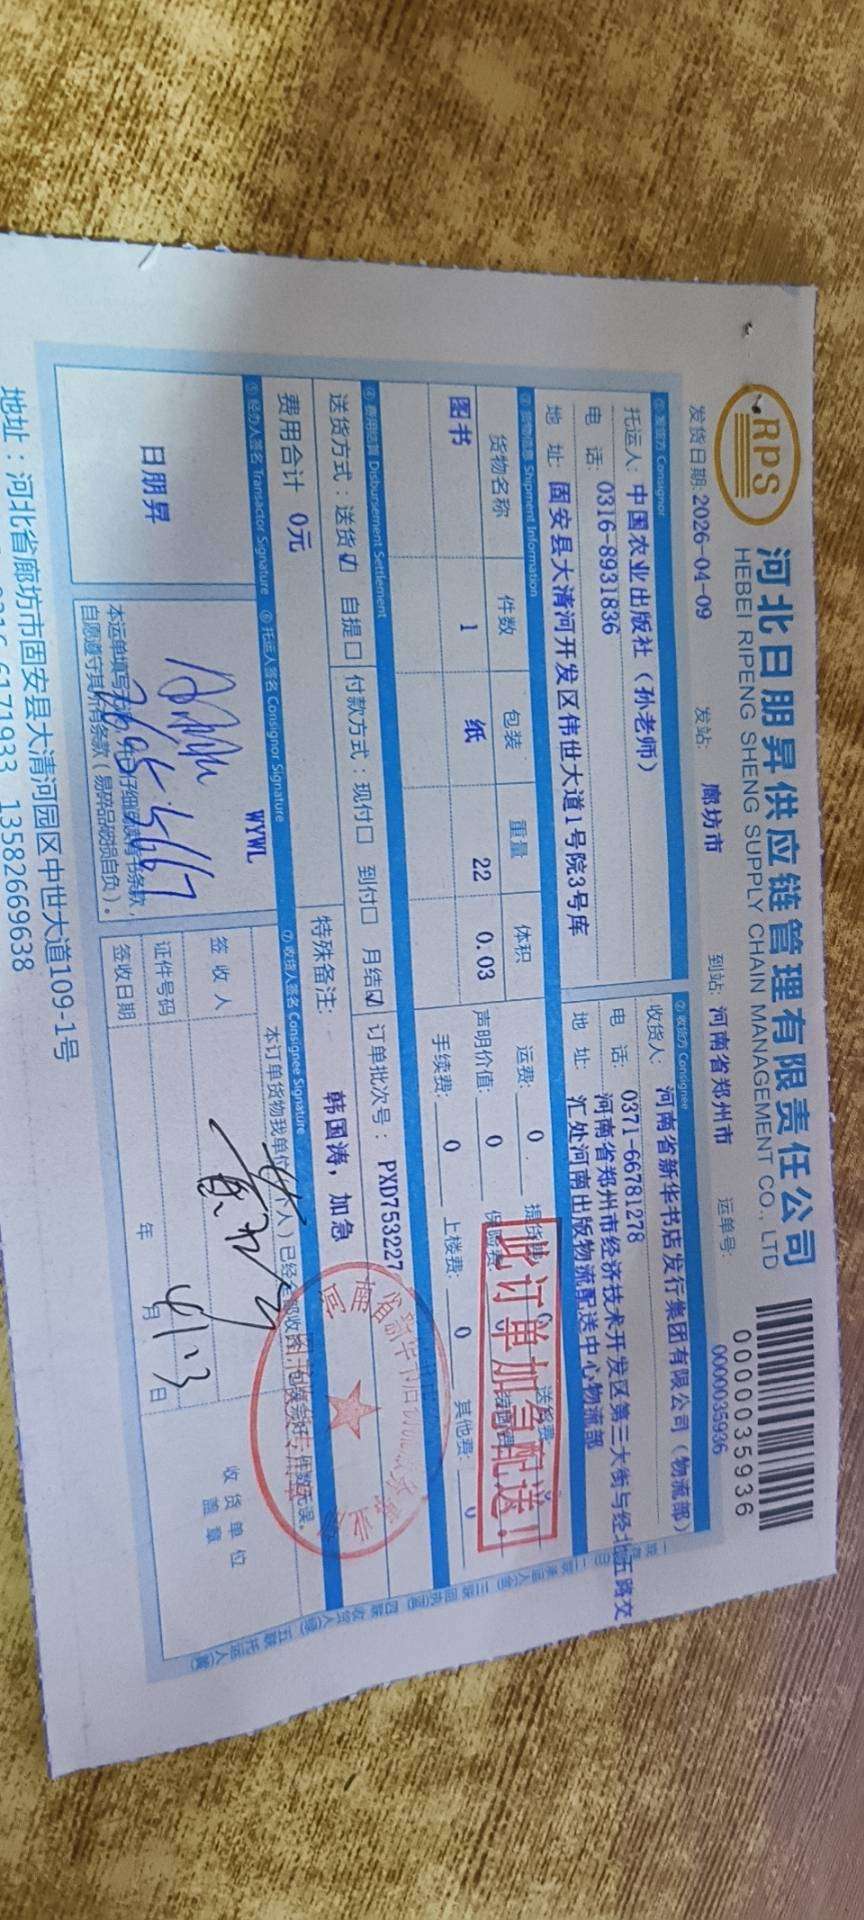 RPS
河北日朋昇供应链管理有限责任公司
HEBEI RIPENG SHENG SUPPLY CHAIN MANAGEMENT CO., LTD
0000035936
发货日期: 2026-04-09 发站: 廊坊市 到站: 河南省郑州市 运单号: 0000035936
① 发货方 Consignor
托运人: 中国农业出版社（孙老师）
电 话: 0316-8931836
地 址: 固安县大清河开发区伟世大道1号院3号库
② 收货方 Consignee
收货人: 河南省新华书店发行集团有限公司（物流部）
电 话: 0371-66781278
地 址: 河南省郑州市经济技术开发区第三大街与经北五路交
汇处河南出版物流配送中心物流部
③ 货物信息 Shipment Information
货物名称 件数 包装 重量 体积
图书 1 纸 22 0.03
运费: 0 提货费: 0 送货费:
声明价值: 0 保险费:
手续费: 0 上楼费: 0 其他费: 0
此订单加急配送!!
④ 费用结算 Disbursement Settlement
送货方式：送货☑ 自提☐ 付款方式：现付☐ 到付☐ 月结☑ 订单批次号： PXD753227
费用合计 0元 特殊备注: 韩国涛, 加急
⑤ 经办人签名 Transactor Signature
日朋昇
⑥ 托运人签名 Consignor Signature
WYWL
自愿遵守其所有条款（易碎品破损自负）。
⑦ 收货人签名 Consignee Signature
签 收 人
证件号码
签收日期 年 月 日
收货单位
盖章
地址：河北省廊坊市固安县大清河园区中世大道109-1号
6171933 13582669638